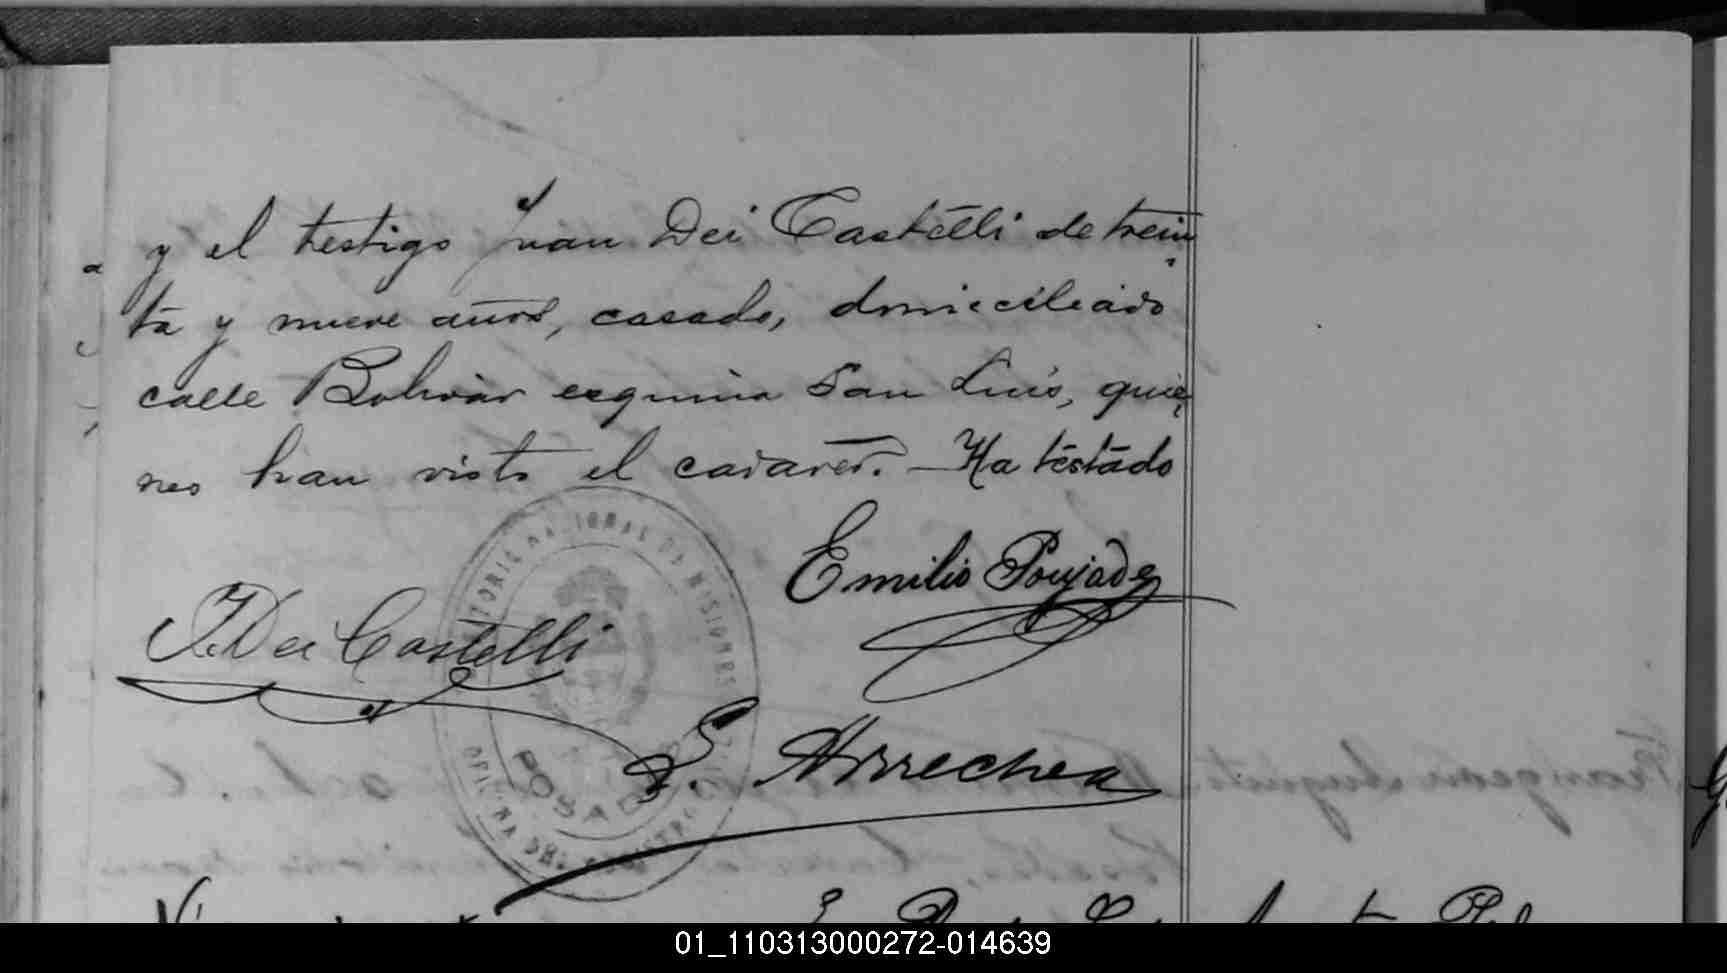 y el testigo Juan Dei Castelli de trein
ta y nueve años, casado, domiciliado
calle Bolivar esquina San Luis, quie
nes han visto el cadaver. — Ha testado
Emilio Poujade
J. Dei Castelli
TERRITORIO NACIONAL DE MISIONES
POSADAS
OFICINA DEL REGISTRO
S. Arrechea
01_110313000272-014639